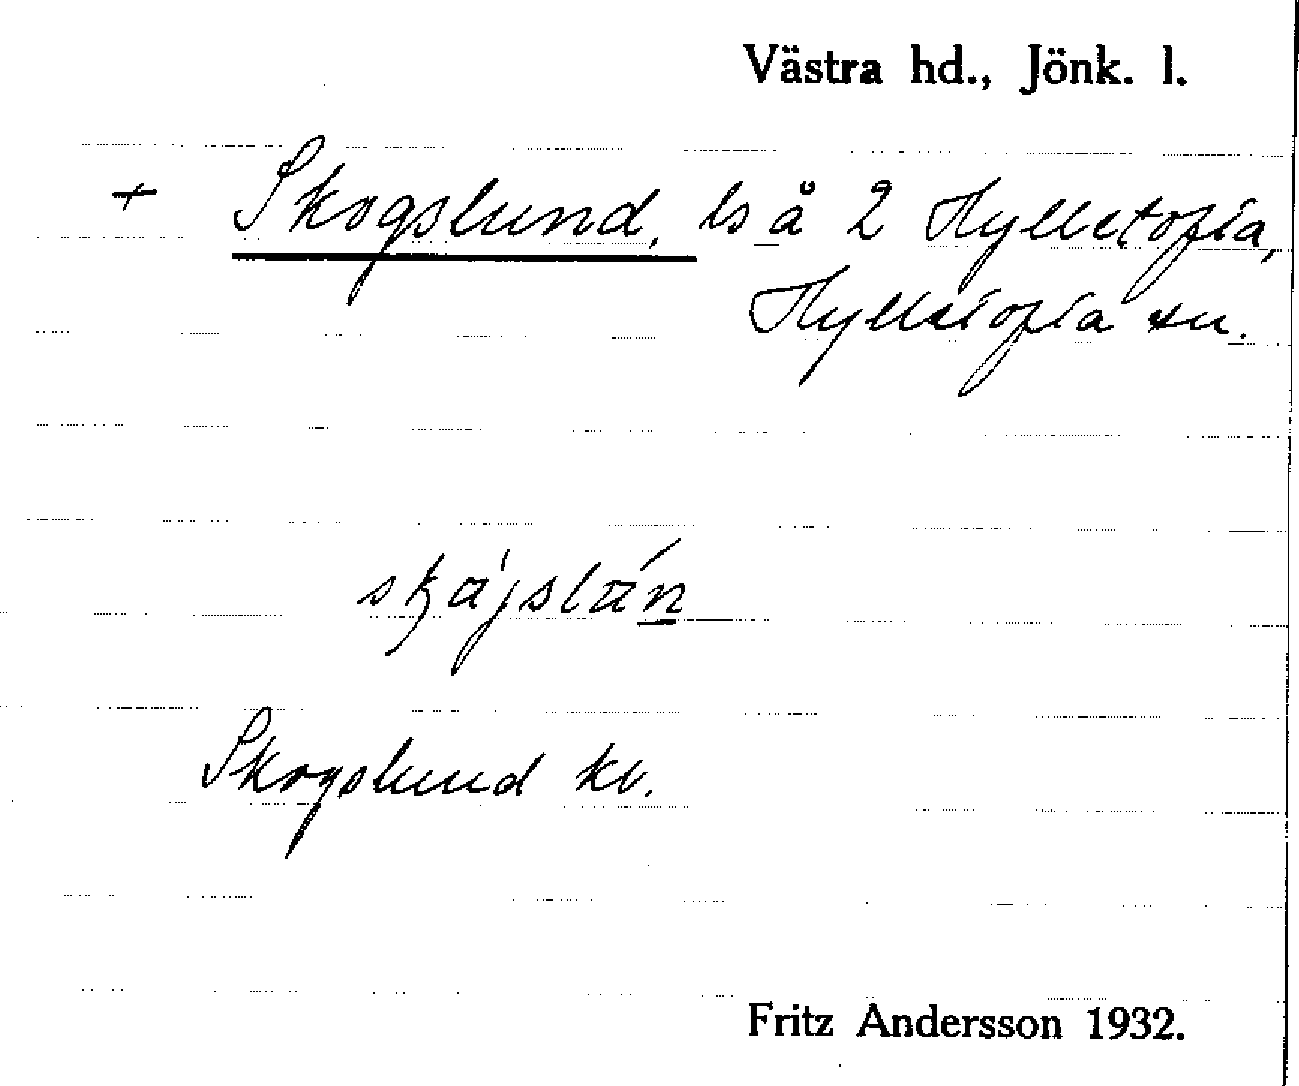 Västra hd., Jönk. l.
+ Skogslund, ls å 2 Hylletofta,
Hylletofta sn.
Skogslund kv.
Fritz Andersson 1932.